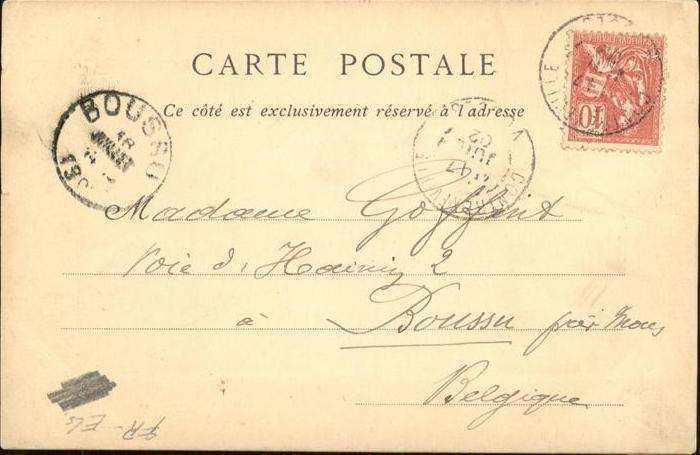 CARTE POSTALE
Ce côté est exclusivement réservé à l'adresse
BOUSSU
18
JUILLET
10
02
JUIL
17
Madame Goffint
Voie d'Hainin 2
à Boussu près Mons
Belgique
FR-ELS